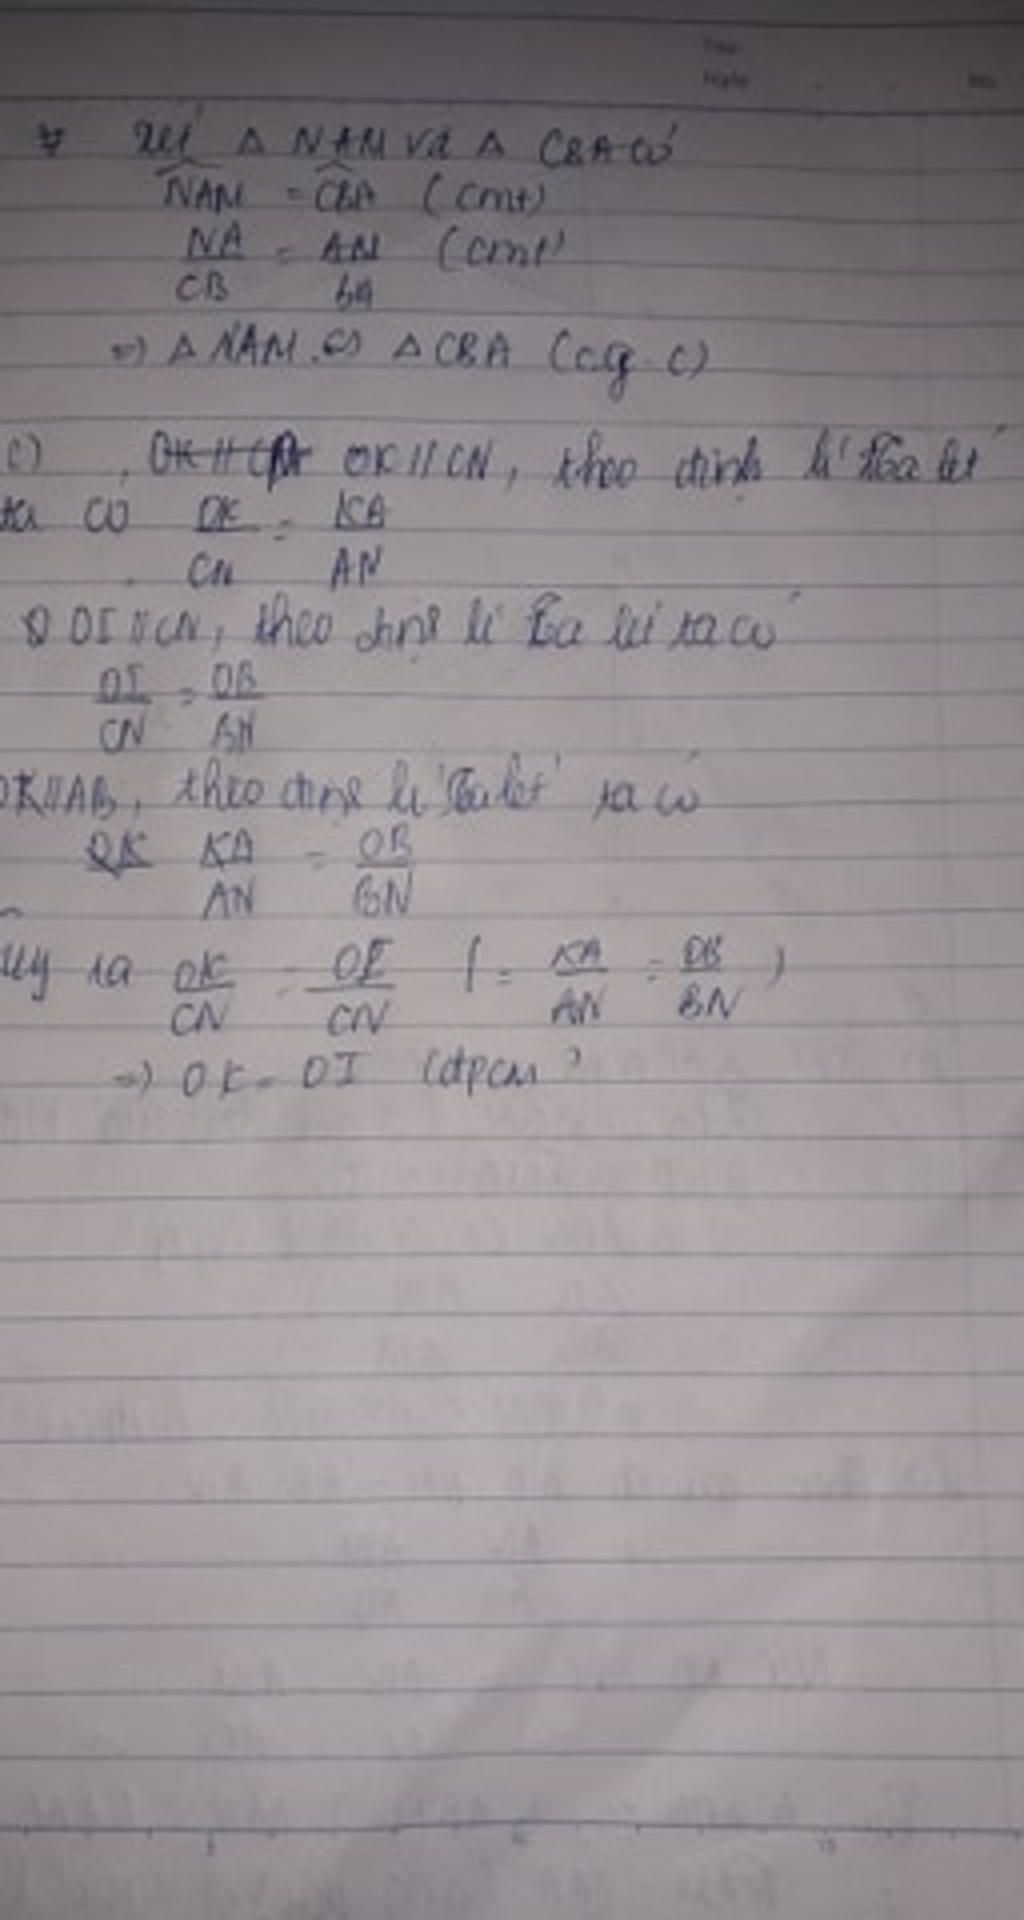 * Xét △ NAM và △ CBA có
NAM = CBA (cmt)
NA/CB = AM/BA (cmt)
=> △ NAM ∽ △ CBA (c.g.c)
c) OK // CN, theo định lí Ta let
ta có OK/CN = KA/AN
OI // CN, theo định lí Ta lét ta có
OI/CN = OB/BN
OK // AB, theo định lí Ta let ta có
KA/AN = OB/BN
ra OK/CN = OI/CN ( = KA/AN = OB/BN )
=> OK = OI (đpcm)